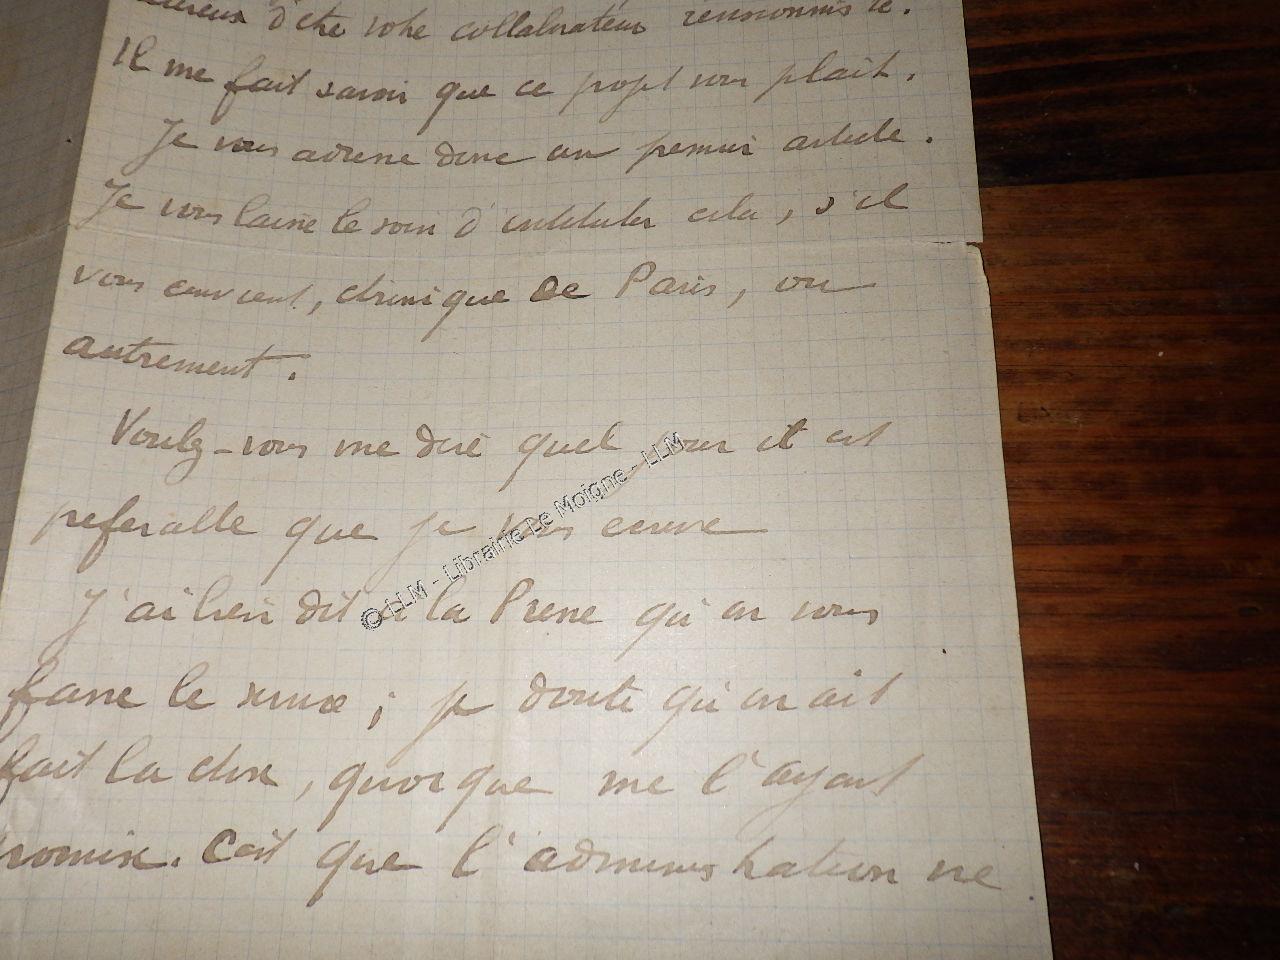 d'être votre collaborateur
Il me fait savoir que ce projet vous plait.
Je vous adresse donc un premier article.
Je vous laisse le soin d'intituler cela, s'il
vous convient, chronique de Paris, ou
autrement.
Voulez-vous me dire quel jour il est
preferable que je vous ecrive
J'ai bien dit à la Presse qu'on vous
fasse le service ; je doute qu'on ait
fait la chose, quoique me l'ayant
promise. C'est que l'administration ne
© LLM - Librairie Le Moigne - LLM